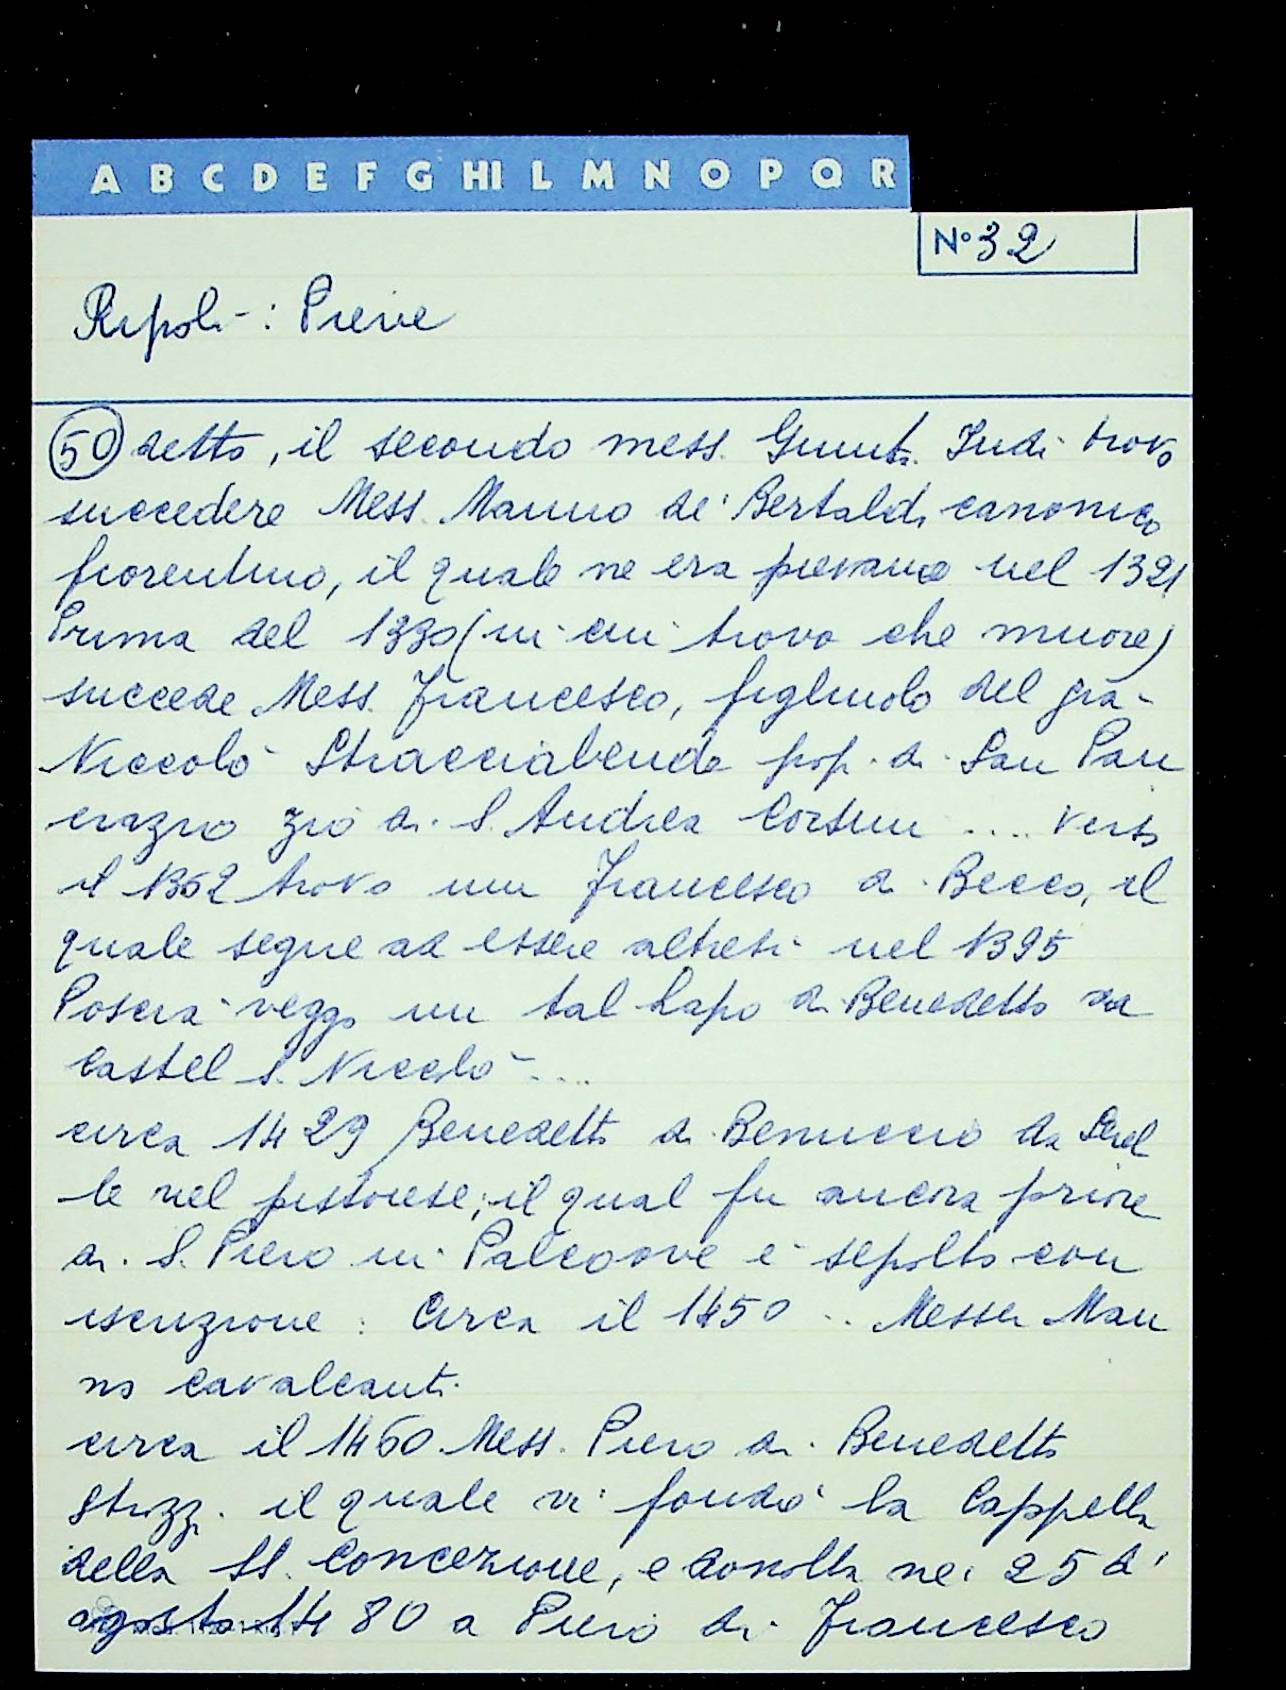 A B C D E F G HI L M N O P Q R
N° 32
Ripoli : Pieve
50 detto, il secondo mess. Giunti. Indi trovo
succedere Mess. Manno de' Bertaldi canonico
fiorentino, il quale ne era pievano nel 1321
Prima del 1330 (in cui trovo che muore)
succede Mess. Francesco, figliuolo del già
Niccolò Stracciabende pop. di San Pan
crazio zio di S. Andrea Corsini .... verso
il 1362 trovo un Francesco di Becco, il
quale segue ad essere altresì nel 1395
Poscia veggo un tal Lapo di Benedetto da
Castel S. Niccolò ....
circa 1429 Benedetto di Benuccio da
le nel pistoiese; il qual fu ancora priore
di S. Piero in Palco ove è sepolto con
iscrizione : Circa il 1450 .. Messer Man
no Cavalcanti.
circa il 1460 Mess. Piero di Benedetto
Strozzi. il quale vi fondò la Cappella
della SS. Concezione, e donolla nei 25 d'
agosto 1480 a Piero di Francesco